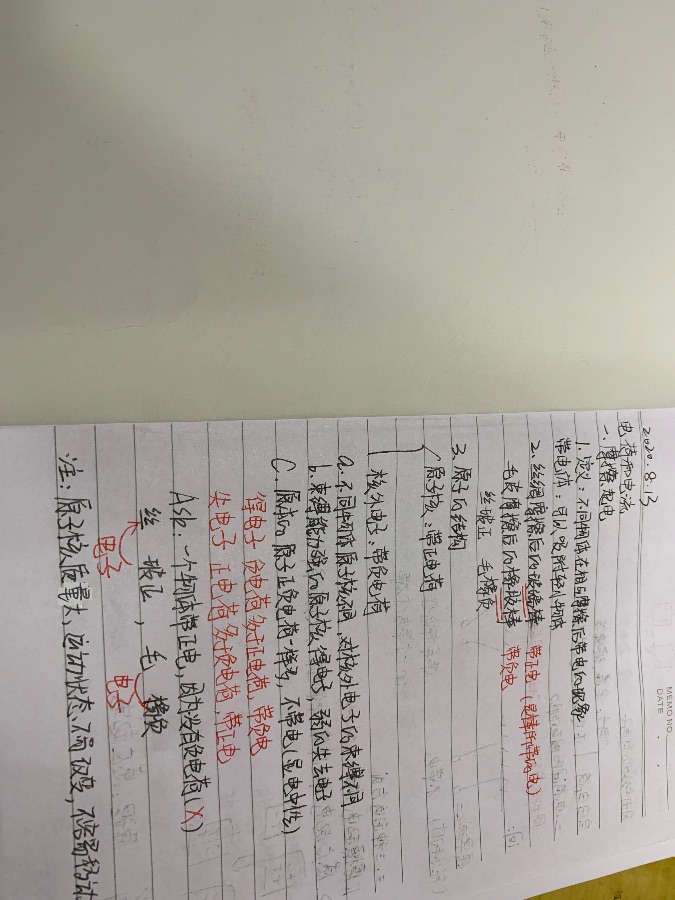 MEMO NO.
DATE
2020.8.13
电荷和电流
一、摩擦起电
1. 定义:不同物体在相互摩擦后带电的现象
带电体:可以吸附轻小物体
2. 丝绸摩擦后的玻璃棒 带正电(是棒所带的电)
毛皮摩擦后的橡胶棒 带负电
丝玻正 毛橡负
3. 原子的结构
原子核:带正电荷
核外电子:带负电荷
a. 不同物体原子核不同,对核外电子的束缚不同
b. 束缚能力强的原子核得电子,弱的失去电子
C. 原本的原子正负电荷一样多,不带电(显电中性)
得电子 负电荷多于正电荷 带负电
失电子 正电荷多于负电荷 带正电
Ask:一个物体带正电,因为没有负电荷(X)
丝 玻正, 毛 橡负
电子 电子
注:原子核质量大,